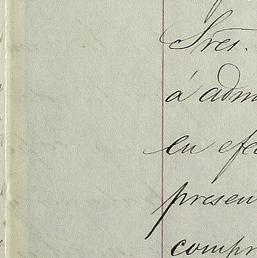 Sres.
á adm
en efe
presen
compr